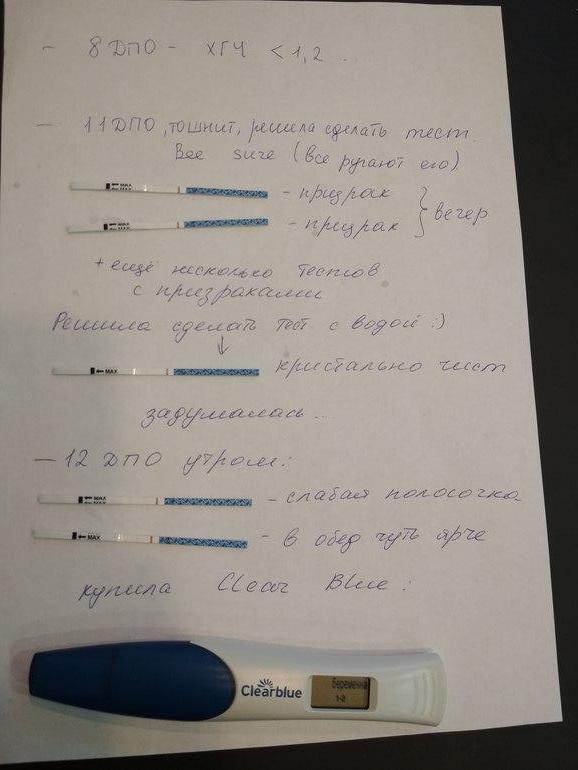 - 8 ДПО - ХГЧ < 1,2 .
- 11 ДПО, тошнит, решила сделать тест.
Bee sure (все ругают его)
MAX
- призрак
MAX
- призрак
} вечер
+ ещё несколько тестов
с призраками
Решила сделать тест с водой :)
↓
MAX
кристально чист
задумалась ...
- 12 ДПО утром:
MAX
- слабая полосочка
MAX
- в обед чуть ярче
купила Clear Blue :
Clearblue
беременна
1-2